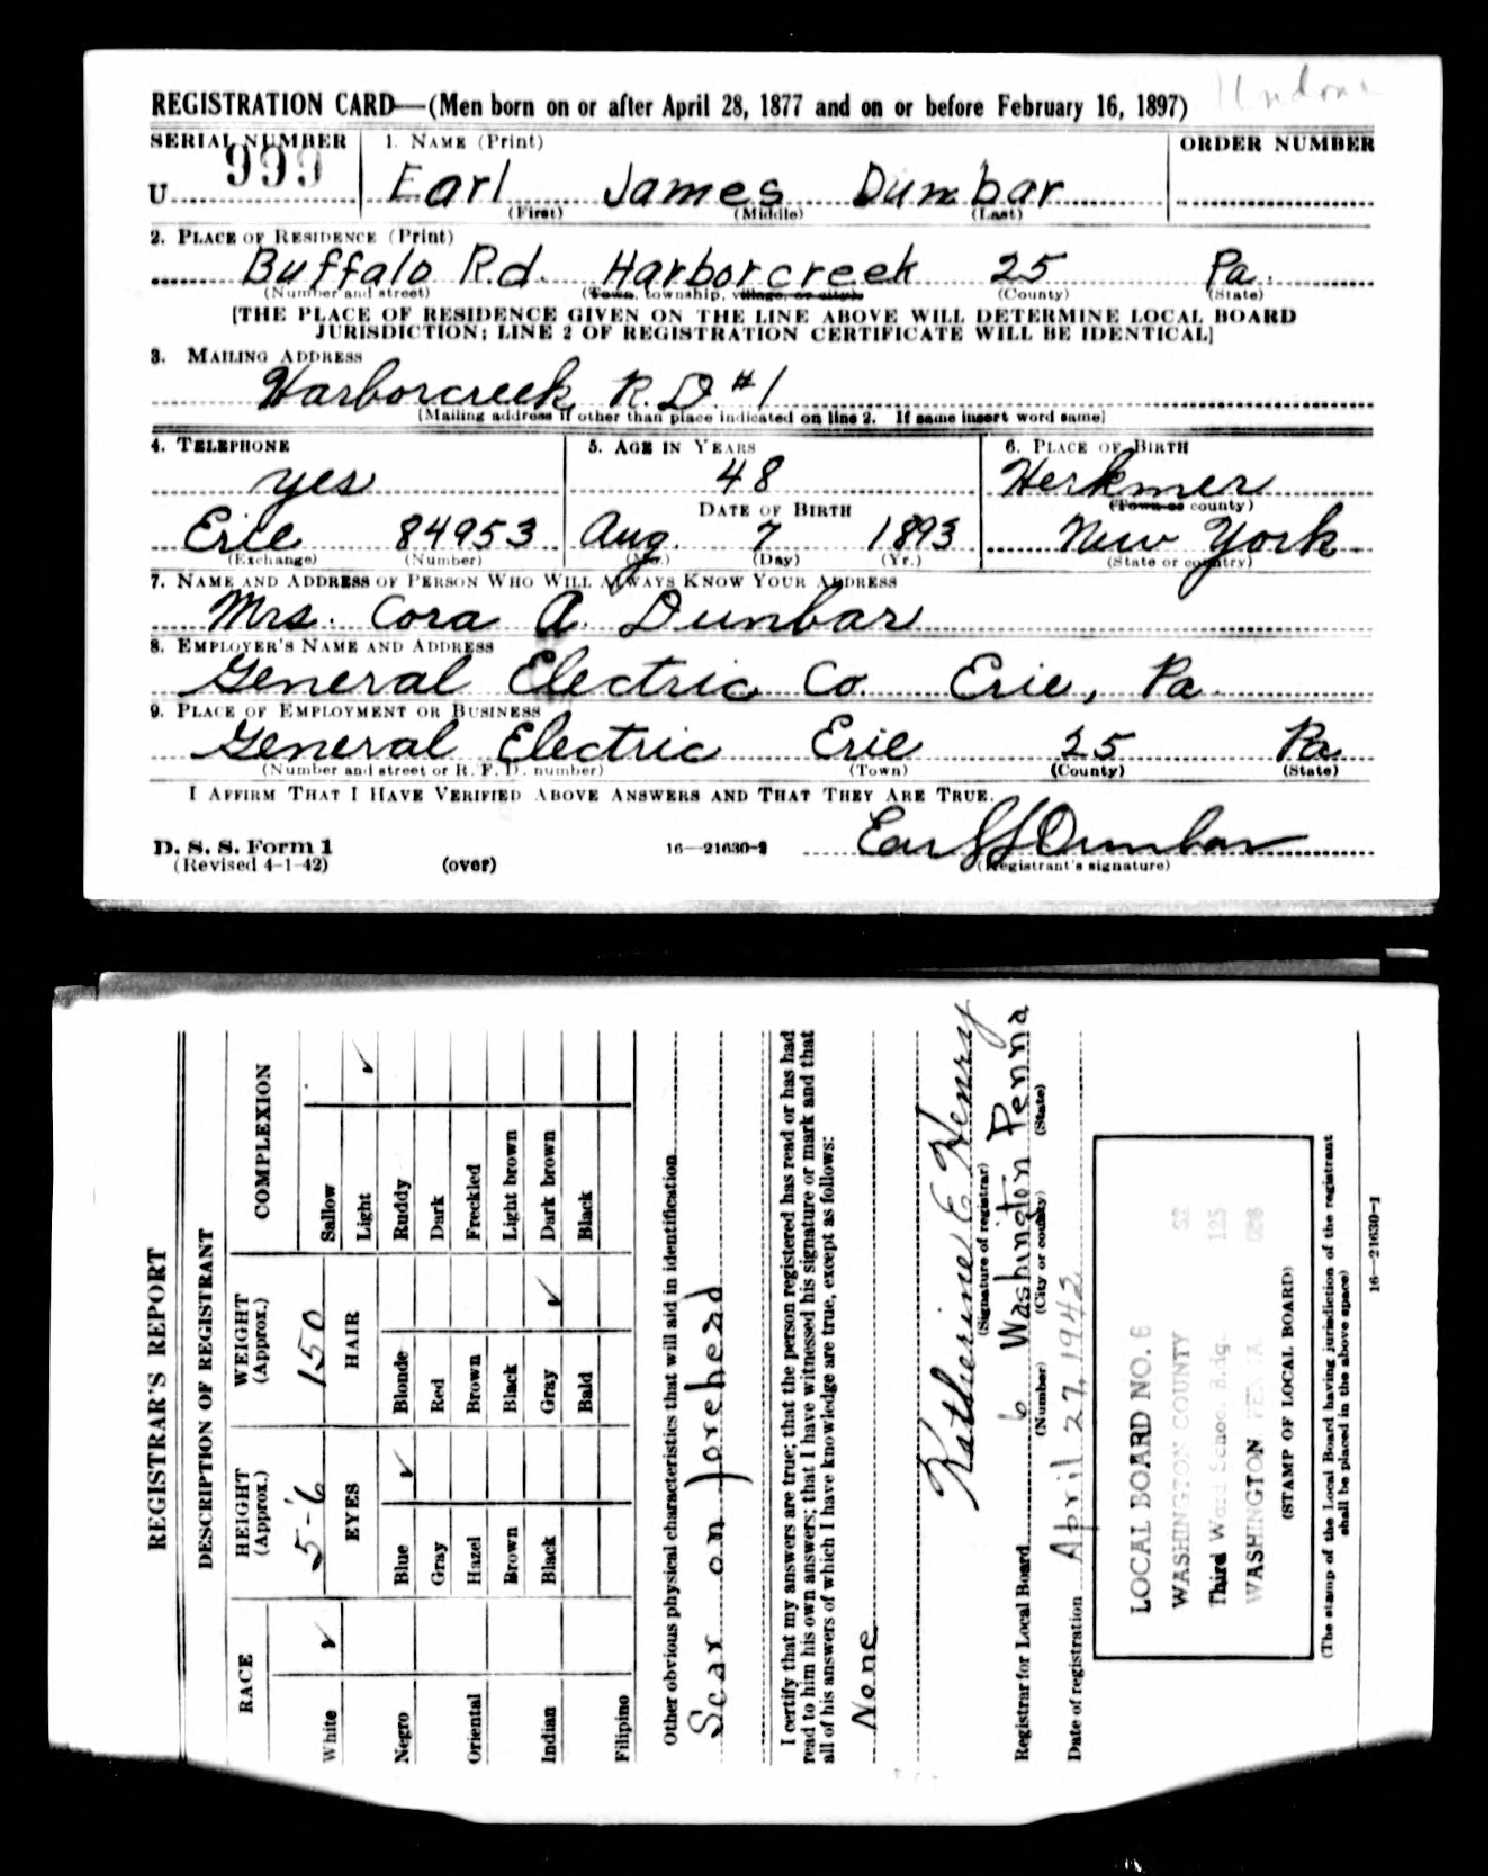 REGISTRATION CARD—(Men born on or after April 28, 1877 and on or before February 16, 1897)
SERIAL NUMBER
1. NAME (Print)
ORDER NUMBER
U 999
Earl James Dunbar
(First) (Middle) (Last)
2. PLACE OF RESIDENCE (Print)
Buffalo Rd. Harborcreek 25 Pa.
(Number and street) (Town, township, village, or city) (County) (State)
[THE PLACE OF RESIDENCE GIVEN ON THE LINE ABOVE WILL DETERMINE LOCAL BOARD
JURISDICTION; LINE 2 OF REGISTRATION CERTIFICATE WILL BE IDENTICAL]
3. MAILING ADDRESS
Harborcreek R.D. #1
[Mailing address if other than place indicated on line 2. If same insert word same]
4. TELEPHONE
5. AGE IN YEARS
6. PLACE OF BIRTH
yes
48
Herkmer
DATE OF BIRTH
(Town or county)
Erie 84953
Aug. 7 1893
New York
(Exchange) (Number)
(Mo.) (Day) (Yr.)
(State or country)
7. NAME AND ADDRESS OF PERSON WHO WILL ALWAYS KNOW YOUR ADDRESS
Mrs. Cora A. Dunbar
8. EMPLOYER'S NAME AND ADDRESS
General Electric Co. Erie, Pa.
9. PLACE OF EMPLOYMENT OR BUSINESS
General Electric Erie 25 Pa
(Number and street or R. F. D. number) (Town) (County) (State)
I AFFIRM THAT I HAVE VERIFIED ABOVE ANSWERS AND THAT THEY ARE TRUE.
D. S. S. Form 1
(Revised 4-1-42)
(over)
16—21630-2
Earl J Dunbar
(Registrant's signature)
REGISTRAR'S REPORT
DESCRIPTION OF REGISTRANT
RACE
HEIGHT (Approx.)
WEIGHT (Approx.)
COMPLEXION
5-6
150
White ✓
EYES
HAIR
Sallow
Light ✓
Negro
Blue ✓
Blonde
Ruddy
Gray
Red
Dark
Oriental
Hazel
Brown
Freckled
Brown
Black
Light brown
Indian
Black
Gray ✓
Dark brown
Bald
Black
Filipino
Other obvious physical characteristics that will aid in identification
Scar on forehead
I certify that my answers are true; that the person registered has read or has had
read to him his own answers; that I have witnessed his signature or mark and that
all of his answers of which I have knowledge are true, except as follows:
None
Katherine E Henry
(Signature of registrar)
Registrar for Local Board 6 Washington Penna
(Number) (City or county) (State)
Date of registration April 27, 1942
LOCAL BOARD NO. 6
WASHINGTON COUNTY
Third Ward School Bldg. 125
WASHINGTON PENNA
(STAMP OF LOCAL BOARD)
(The stamp of the Local Board having jurisdiction of the registrant
shall be placed in the above space)
16—21630-1